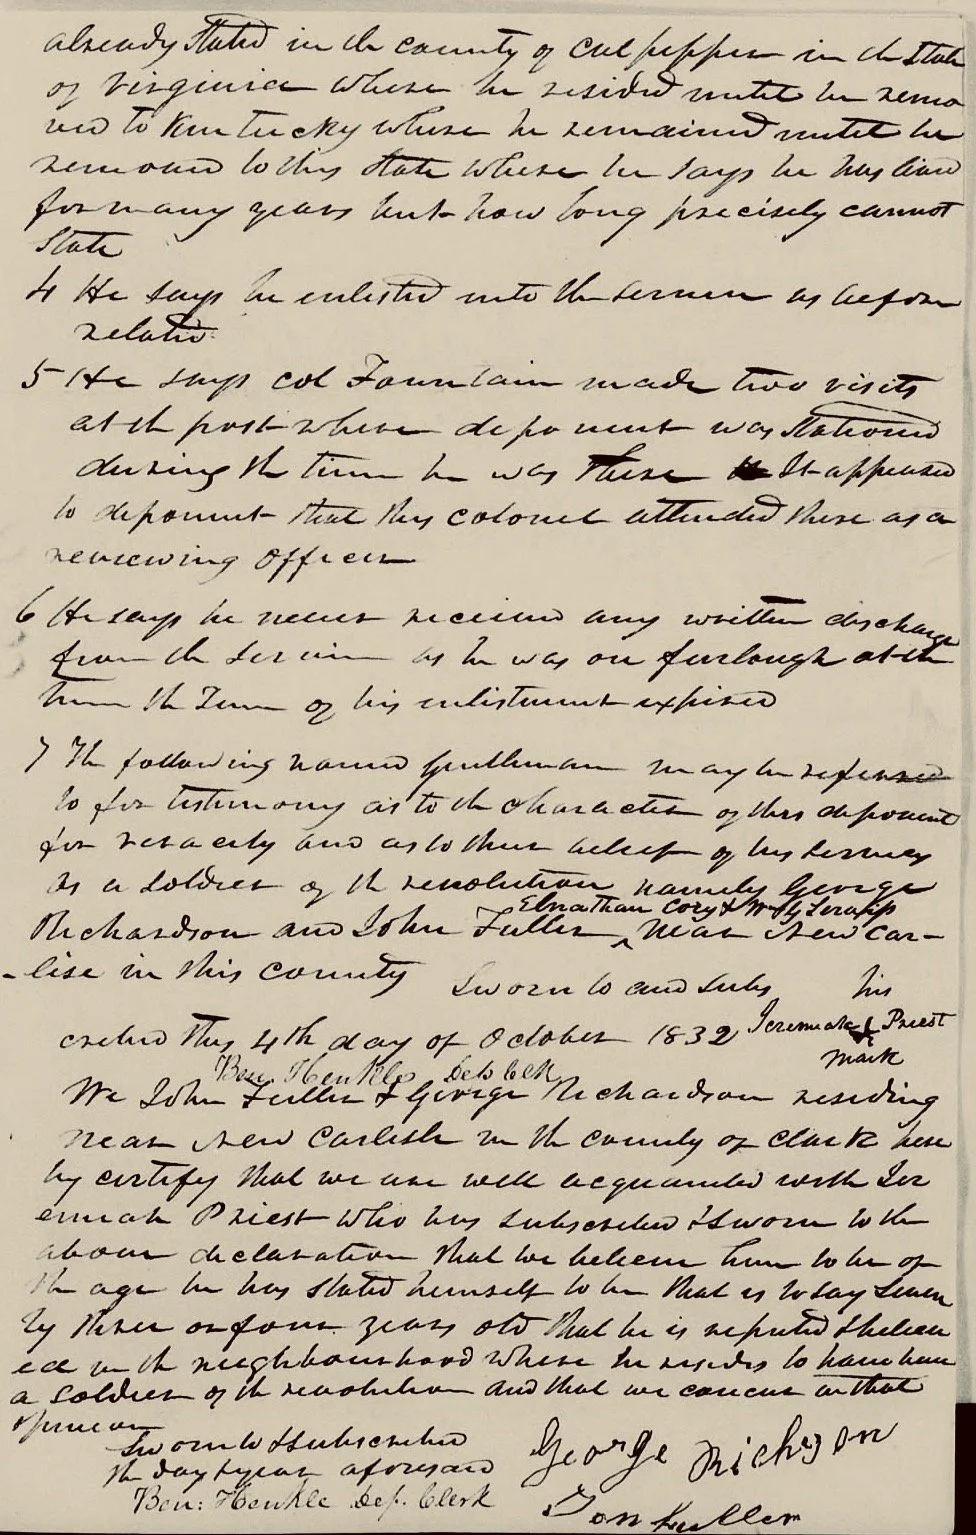 already stated in the county of Culpepper in the State
of Virginia where he resided until he remo
ved to Kentucky where he remained until he
removed to this State where he says he has lived
for many years but how long precisely cannot
State
4 He says he enlisted into the service as before
related
5 He says col Fountain made two visits
at the post where deponent was stationed
during the time he was there It appeared
to deponent that this colonel attended there as a
reviewing officer
6 He says he never received any written discharge
from the service as he was on furlough at the
time the Term of his enlistment expired
7 The following named Gentleman may be referred
to for testimony as to the character of this deponent
for veracity and as to their belief of his services
as a soldier of the revolution namely George
Elnathan Cory & Wm G Serapp
Richardson and John Fuller ^ Near New Car-
-lise in this county
Sworn to and subs his
cribed this 4th day of October 1832 Jeremiah X Priest
mark
Ben. Henkle Dep Clk
We John Fuller & George Richardson residing
near New Carlisle in the county of Clark here
by certify that we are well acquainted with Jer
emiah Priest who has subscribed & sworn to the
above declaration that we believe him to be of
the age he has stated himself to be that is to say Seven
ty three or four years old that he is reputed & believ
ed in the neighbourhood where he resides to have been
a soldier of the revolution and that we concur in that
opinion
Sworn to & subscribed
the day & year aforesaid
Ben: Henkle Dep. Clerk
George Richson
Jon Fuller